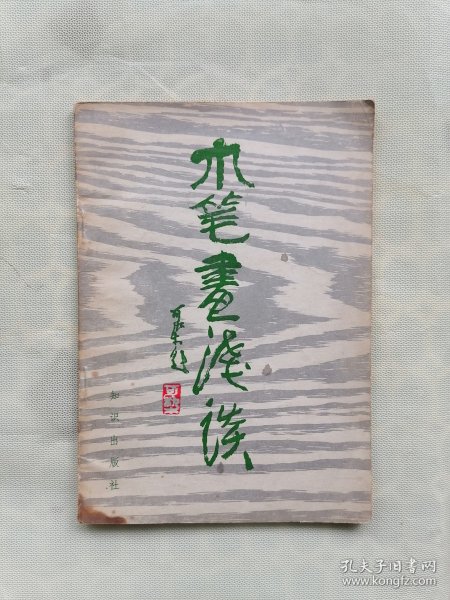 木笔畫浅谈
可染题
知识出版社
孔夫子旧书网
www.kongfz.com